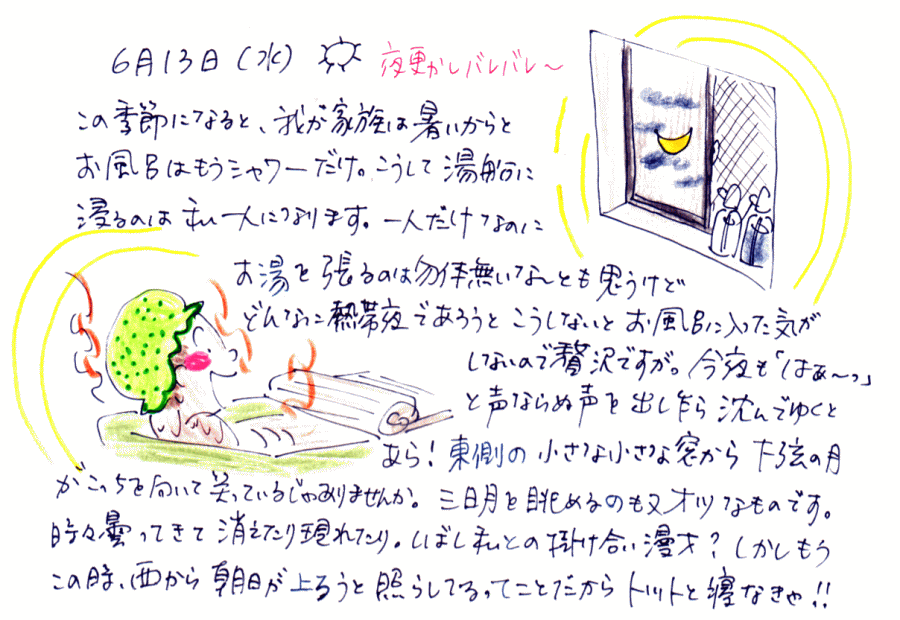 6月13日(水) 夜更かしバレバレ〜
この季節になると、我が家族は暑いからと
お風呂はもうシャワーだけ。こうして湯船に
浸るのは私一人になります。一人だけなのに
お湯を張るのは勿体無いな〜とも思うけど
どんなに熱帯夜であろうとこうしないとお風呂に入った気が
しないので贅沢ですが。今夜も「はぁ〜っ」
と声ならぬ声を出し乍ら沈んでゆくと
あら!東側の小さな小さな窓から下弦の月
がこっちを向いて笑っているじゃありませんか。三日月を眺めるのも又オツなものです。
時々曇ってきて消えたり現れたり。しばし私との掛け合い漫才?しかしもう
この時、西から朝日が上ろうと照らしてるってことだからトットと寝なきゃ!!